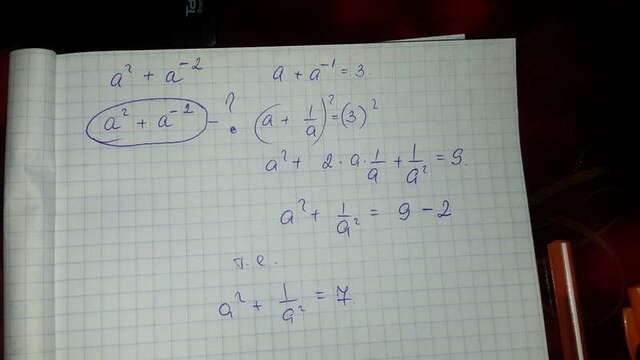 a² + a⁻² a + a⁻¹ = 3
a² + a⁻² - ? (a + 1/a)² = (3)²
a² + 2 · a · 1/a + 1/a² = 9.
a² + 1/a² = 9 - 2
т.е.
a² + 1/a² = 7.